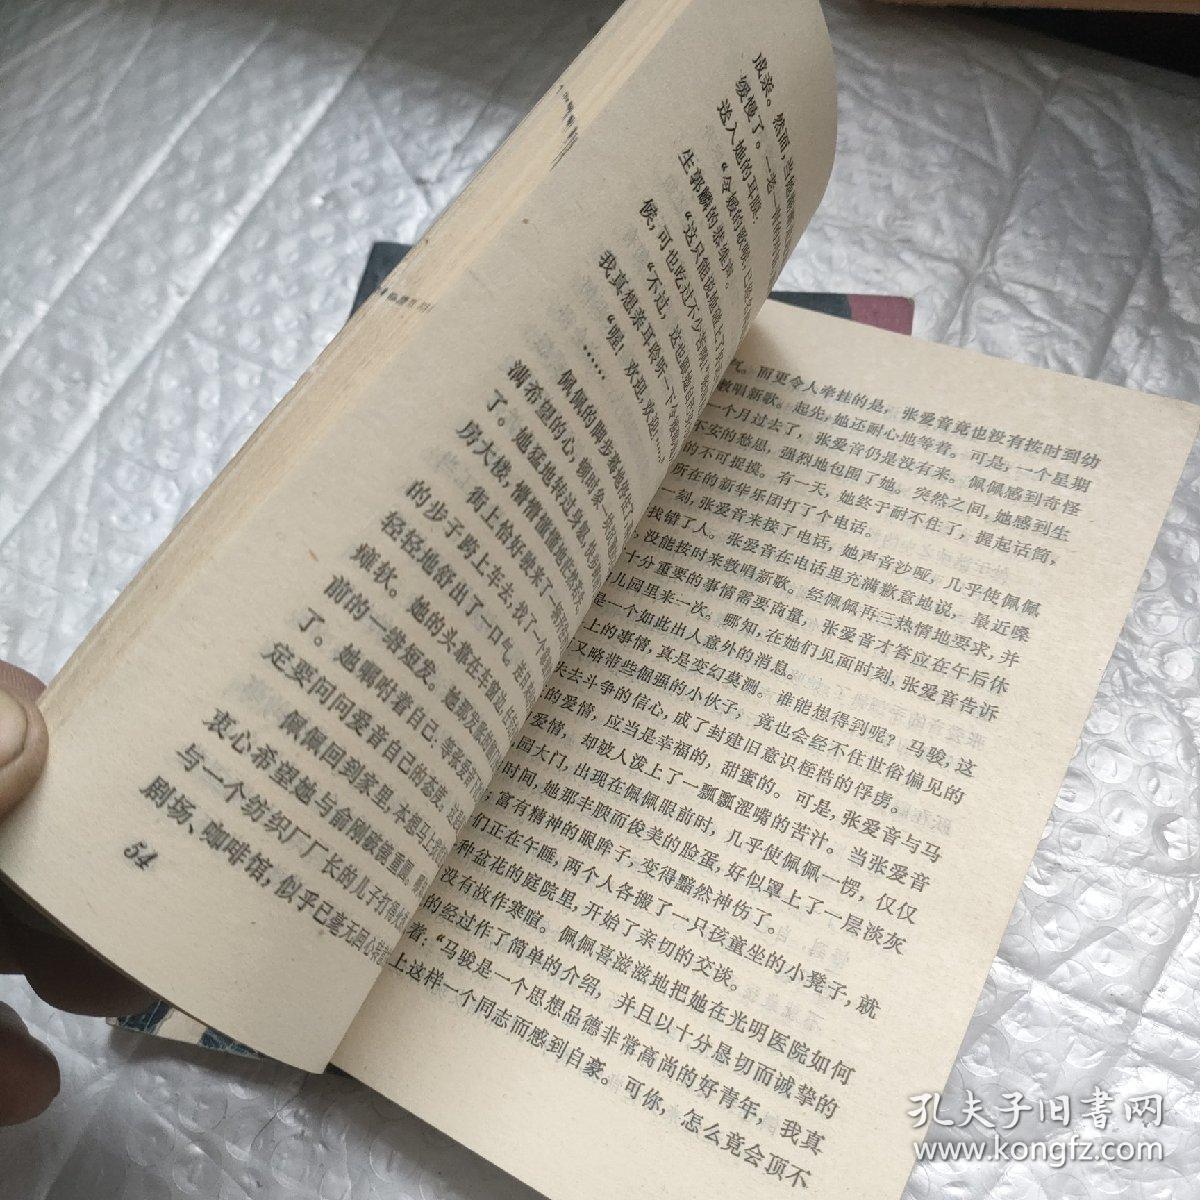 成亲。然而，当她
缓慢了。一老一
送入她的耳膜：
“令嫒的歌喉，已
生郭麟的恭维声。
“这只能说她碰上了
候，可也吃过不少苦啊！”
“不过，这也
我真想亲耳聆听一下令嫒
“喔！欢迎，欢迎……”
……
佩佩的脚步蓦地
满希望的心，顿时象一
了。她猛地转过身躯，快步
房大楼，懵懵懂懂地
街上恰好驶来了一辆
的步子跨上车去，找了一个
轻轻地舒出了一口气。
瘫软。她的头靠在车窗边，
前的一绺短发。她那
了。她嘱咐着自己：等张爱音
定要问问爱音自己的态度，
佩佩回到家里，本想马上
衷心希望她与俞刚破镜重圆，
与一个纺织厂厂长的儿子打得火
剧场、咖啡馆，似乎已毫无回心转意
54
气。而更令人牵挂的是，张爱音竟也没有按时到幼
教唱新歌。起先，她还耐心地等着。可是，一个星期
一个月过去了，张爱音仍是没有来。佩佩感到奇怪
不安的愁思，强烈地包围了她。突然之间，她感到生
的不可捉摸。有一天，她终于耐不住了，握起话筒，
所在的新华乐团打了个电话。
一刻，张爱音来接了电话，她声音沙哑，几乎使佩佩
找错了人。张爱音在电话里充满歉意地说，最近嗓
没能按时来教唱新歌。经佩佩再三热情地要求，并
十分重要的事情需要商量，张爱音才答应在午后休
儿园里来一次。哪知，在她们见面时刻，张爱音告诉
是一个如此出人意外的消息。
上的事情，真是变幻莫测。谁能想得到呢？马骏，这
又略带些倔强的小伙子，竟也会经不住世俗偏见的
失去斗争的信心，成了封建旧意识桎梏的俘虏。
的爱情，应当是幸福的，甜蜜的。可是，张爱音与马
爱情，却被人泼上了一瓢瓢涩嘴的苦汁。当张爱音
园大门，出现在佩佩眼前时，几乎使佩佩一愣，仅仅
时间，她那丰腴而俊美的脸蛋，好似罩上了一层淡灰
富有精神的眼眸子，变得黯然神伤了。
们正在午睡，两个人各搬了一只孩童坐的小凳子，就
种盆花的庭院里，开始了亲切的交谈。
没有故作寒暄。佩佩喜滋滋地把她在光明医院如何
的经过作了简单的介绍，并且以十分恳切而诚挚的
着：“马骏是一个思想品德非常高尚的好青年，我真
上这样一个同志而感到自豪。可你，怎么竟会顶不
孔夫子旧书网
www.kongfz.com